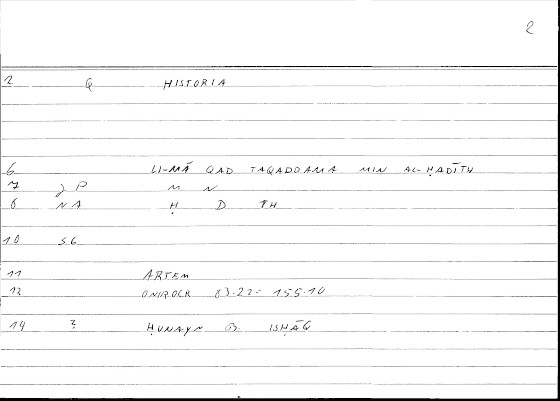 2
2 Q HISTORIA
6 LI-MĀ QAD TAQADDAMA MIN AL-ḤADĪTH
7 P M N
8 NA Ḥ D TH
10 SG
11 ARTEM
12 ONIROCR 83.22 = 155.10
14 2 ḤUNAYN B. ISḤĀQ